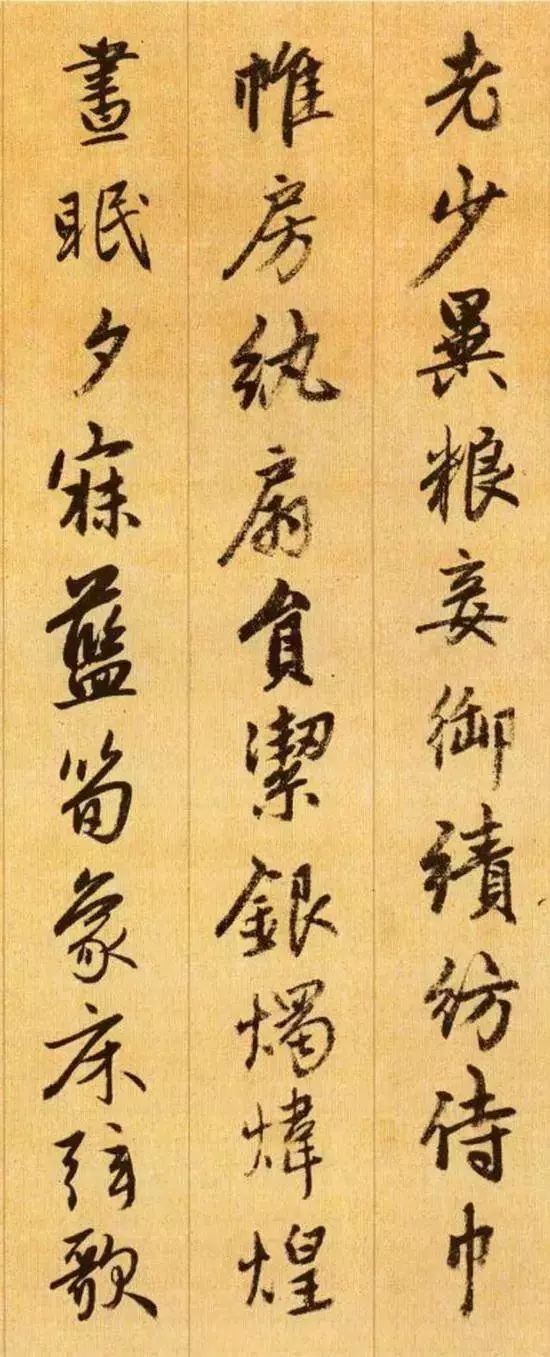 老少異粮妾御績紡侍巾
帷房紈扇員潔銀燭煒煌
晝眠夕寐藍筍象床弦歌